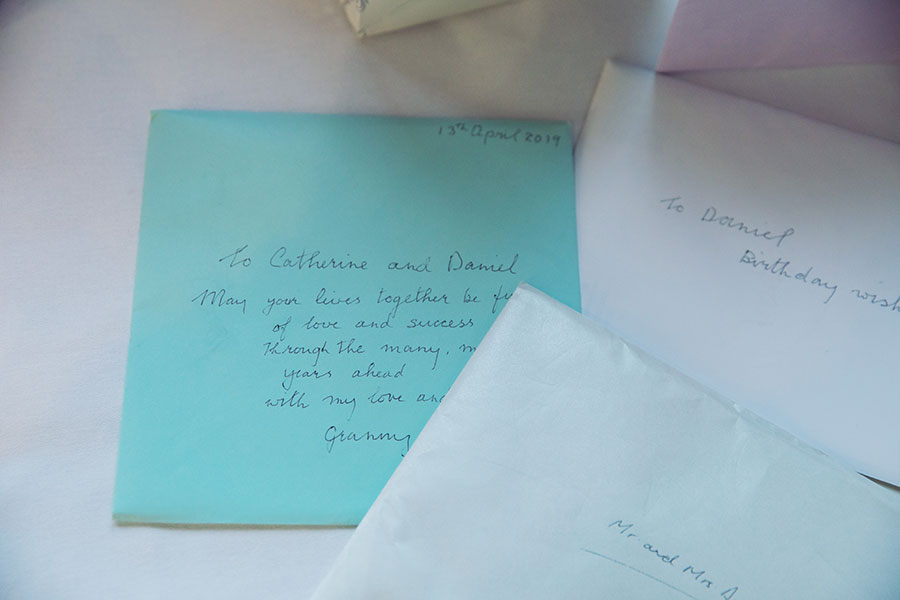 13th April 2019
To Catherine and Daniel
May your lives together be
of love and success
through the many, m
years ahead
with my love and
Granny
To Daniel
Birthday wish
Mr and Mrs